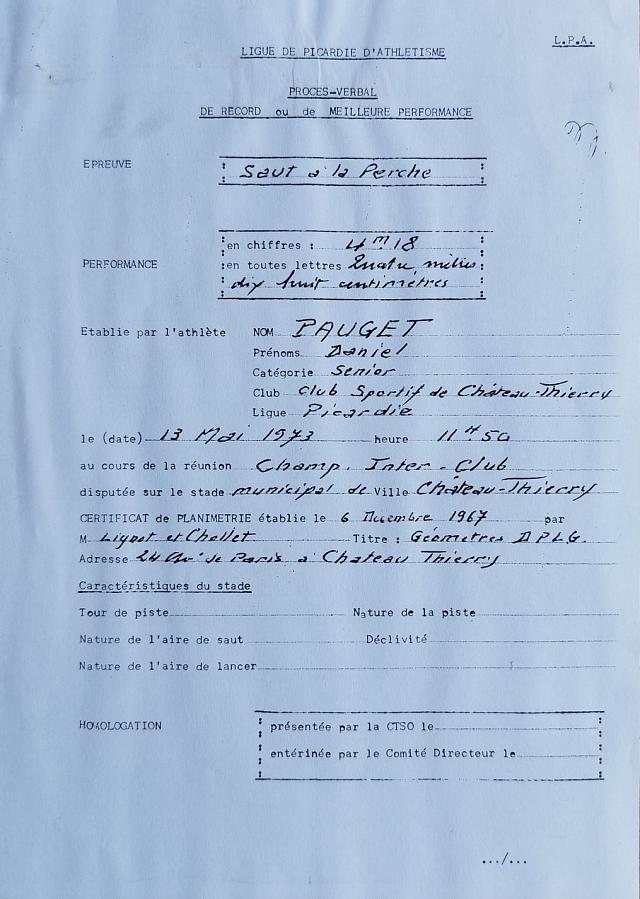 L.P.A.
LIGUE DE PICARDIE D'ATHLETISME
PROCES-VERBAL
DE RECORD ou de MEILLEURE PERFORMANCE
EPREUVE Saut à la Perche
en chiffres : 4m18
PERFORMANCE en toutes lettres Quatre mètres
dix huit centimètres
Etablie par l'athlète NOM PAUGET
Prénoms Daniel
Catégorie Senior
Club Club Sportif de Château-Thierry
Ligue Picardie
le (date) 13 Mai 1973 heure 11H50
au cours de la réunion Champ. Inter-Club
disputée sur le stade municipal de Ville Château-Thierry
CERTIFICAT de PLANIMETRIE établie le 6 Décembre 1967 par
M Lignot et Chollet Titre : Géomètres DPLG.
Adresse 24 Av. de Paris à Chateau Thierry
Caractéristiques du stade
Tour de piste Nature de la piste
Nature de l'aire de saut Déclivité
Nature de l'aire de lancer
HOMOLOGATION présentée par la CTSO le
entérinée par le Comité Directeur le
.../...